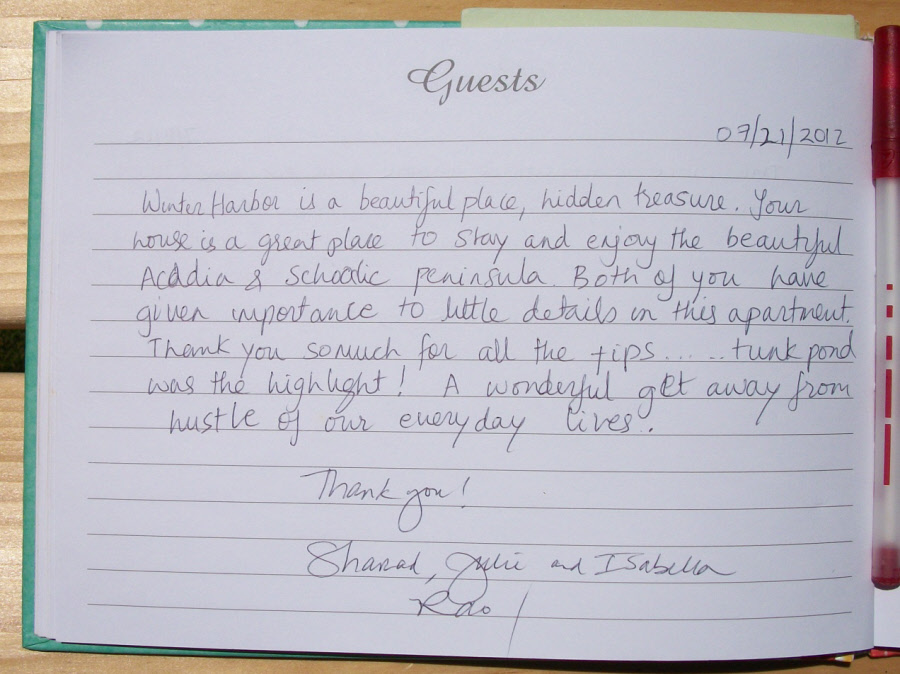 Guests
07/21/2012
Winter Harbor is a beautiful place, hidden treasure. Your
house is a great place to stay and enjoy the beautiful
Acadia & Schoodic peninsula. Both of you have
given importance to little details in this apartment.
Thank you so much for all the tips ..... tunk pond
was the highlight! A wonderful get away from
hustle of our everyday lives.
Thank you!
Sharad, Julie and Isabella
Rao